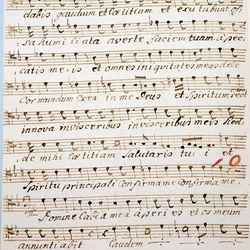 dabis gaudium et lætitiam et exultabunt os
sa humiliata averte faciem tuam a pec
catis meis et omnes iniquitates meas dele
Cor mundum Crea in me Deus et Spiritum rect
innova in visceribus in visceribus meis Red
de mihi lætitiam Salutaris tui et
Spiritu principali confirma me confirma me
Domine labia mea aperies et os meum
annuntiabit Laudem